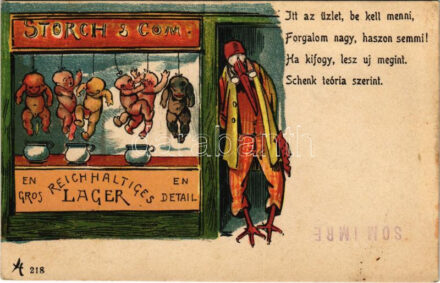 STORCH & COM.
Itt az üzlet, be kell menni,
Forgalom nagy, haszon semmi!
Ha kifogy, lesz uj megint.
Schenk teória szerint.
EN GROS
REICHHALTIGES
LAGER
EN DETAIL
SOM IMRE
218
darabanth